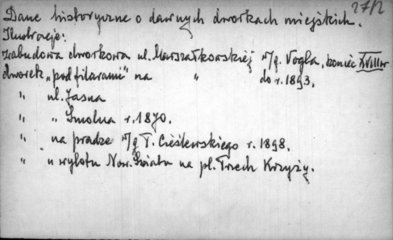 27/2
Dane historyczne o dawnych dworkach miejskich.
Ilustracje:
zabudowa dworkowa ul. Marszałkowskiej w/g. Vogla, koniec XVIII w
dworek „pod filarami" na " do r. 1893.
" ul. Jasna
" " Smolna r. 1870.
" na pradze w/g T. Cieślewskiego r. 1898.
" u wylotu Now. Światu na pl. Trzech Krzyży.